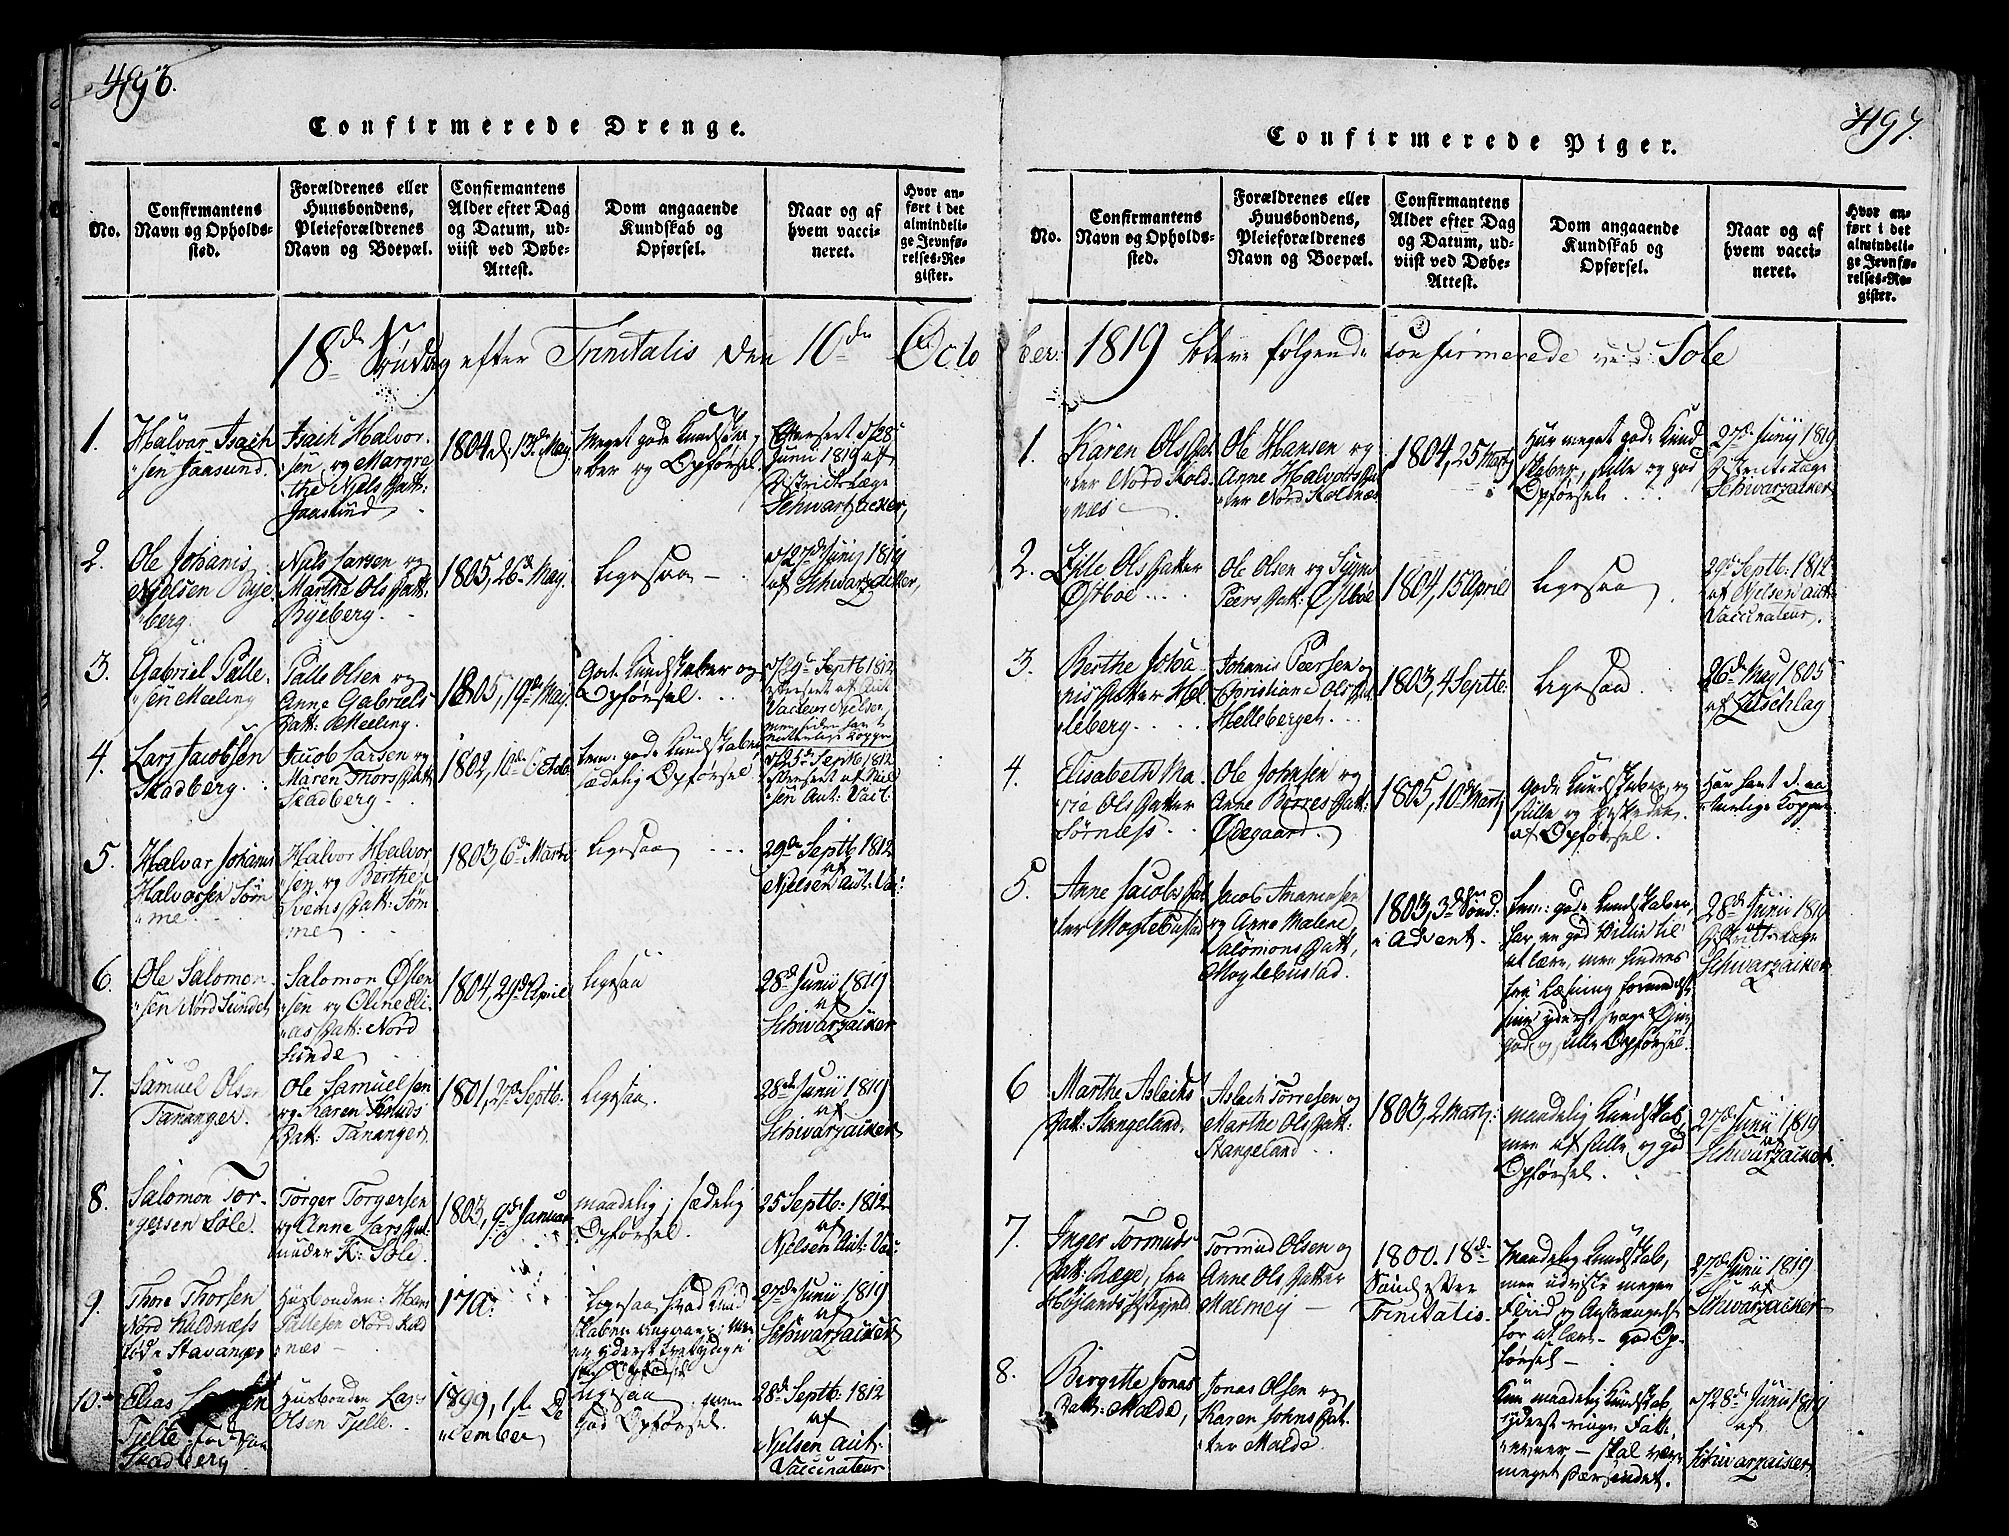 496.
Confirmerede Drenge.
No.
Confirmantens
Navn og Opholds-
sted.
Forældrenes eller
Huusbondens,
Pleieforældrenes
Navn og Boepæl.
Confirmantens
Alder efter Dag
og Datum, ud-
viist ved Døbe-
Attest.
Dom angaaende
Kundskab og
Opførsel.
Naar og af
hvem vacci-
neret.
Hvor an-
ført i det
almindeli-
ge Jevnfø-
relses-Re-
gister.
18de Søndag efter Trinitatis den 10de Octo
1.
Halvar Isach
sen Jaasund.
Isach Halvor-
sen, og Margre
the Niels Datt:
Jaasund
1804 d. 13de May
Meget gode Kundska-
ber og Opførsel.
28
Junii 1819 af
Districtslæge
Schwartzacker,
2.
Ole Johanis
Nielsen Bye-
berg
Niels Larsen og
Marthe Ols Datt:
Byeberg.
1805, 26de May.
Ligesaa
27de Junij 1819
af Schwarzacker,
3.
Gabriel Palle-
sen Meeling
Palle Olsen og
Anne Gabriels
Datt: Meeling.
1805, 19de May.
Godt Kundskaber og
Opførsel.
29 Septb 1812
af Aut.
Vacteur Nielsen,
men siden havt
naturlige Kopper
4.
Lars Jacobsen
Skadberg.
Jacob Larsen og
Maren Thors Datt
Skadberg.
1802, 10de Octob.
Tem: gode Kundskaber,
sædelig Opførsel
25de Septb 1812
af Niel
sen Aut: Vact.
5.
Halvar Johanis
Halvorsen Søm
me.
Halvor Halvor
sen og Berthe
Svens Datt: Søm
me
1803 6te Martii
Ligesaa
29de Septb 1812
af
Nielsen Aut: Vac:
6.
Ole Salomon
sen Nord Sunde
Salomon Osten
sen og Oline Eli
as Datt: Nord
Sunde
1804, 29de April
Ligesaa
28de Junii 1819
af
Schwarzaicker
7.
Samuel Olsen
Tananger.
Ole Samuelsen
og Karen Knuds
Datt: Tananger.
1801, 27de Septb.
Ligesaa.
28de Junii 1819
af
Schwarzaicker
8.
Salomon Tor-
gersen Sole.
Torger Torgersen
og Anne Lars Dat
under K: Sole.
1803, 9de Januar
maadelig; sædelig
Opførsel.
25 Septb: 1812
af
Nielsen Aut: Vac:
9.
Thore Thorsen
Nord Koldnæss
født i Stavanger
Husbonden: Hans
Pallesen Nord Kold
næs
179
Ligesaa, hvad Kund
skaben angaaer; men
en yderst
Opførsel
27de Junii 1819
af
Schwarzaicker
10.
Elias
Tjelle, født paa
Skadberg
Husbonden Lars
Olsen Tjelle.
1799, 1ste De
cember
Ligesaa men
God Opførsel.
28de Septb: 1812
af
Nielsen Aut:
Vaccinateur
497.
Confirmerede Piger.
No.
Confirmantens
Navn og Opholds-
sted.
Forældrenes eller
Huusbondens,
Pleieforældrenes
Navn og Boepæl.
Confirmantens
Alder efter Dag
og Datum, ud-
viist ved Døbe-
Attest.
Dom angaaende
Kundskab og
Opførsel.
Naar og af
hvem vacci-
neret.
Hvor an-
ført i det
almindeli-
ge Jevnfø-
relses-Re-
gister.
ber: 1819 bleve følgende confirmerede ved Sole
1.
Karen Ols Dat
ter Nord Kold-
næs
Ole Hansen og
Anne Halvors Da
ter Nord Koldnæs
1804, 25 Martj
Har meget gode Kund
skaber, stille og god
Opførsel.
27de Junij 1819
Districtslæge
Schwarzaicker
2.
Ols Datter
Østboe
Ole Olsen og
Peers Datt: Østboe
1804, 15 April
Ligesaa
29de Septb. 1812
af Nielsen aut:
Vaccinateur.
3.
Berthe Joha
nis Datter Hel
leberg
Johanis Peersen og
Christiane Ols Dat
Hellebergh
1803, 4 Septbr.
Ligesaa.
26de May 1805
af Zeschlag
4.
Elisabeth Ma
rie Ols Datter
Sørnæss.
Ole Johnsen og
Anne Børres Datt:
Ødegaard.
1805, 10de Martj
Gode Kundskaber, og
stille og beskeden
af Opførsel.
Har havt de na
turlige Kopper
5.
Anne Jacobs Dat
ter Moglebustad
Jacob Ananiasen
og Anne Malene
Salomons Datt,
Mogdebustad.
1803, 3de Sønd:
i Advent.
Tem: gode Kundskaber,
har en god Villie til
at lære, men hindres
fra Læsning formedelst
sine yderst svage Øine
god og stille Opførsel.
28de Junii 1819
Districtslæge
Schwarzaicker
6
Marthe Aslachs
Datt: Stangeland.
Aslach Torresen og
Marthe Ols Datt:
Stangeland
1803, 2 Martj:
maadelig Kundskab,
men af stille og god
Opførsel
27de Junii 1819
af
Schwarzaicker.
7.
Inger Tormuds
Datt: Ræge, fra
Høylands Præstegield
Tormud Olsen og
Anne Ols Datter
Malmeij
1800. 18de
Sønd: efter
Trinitatis.
Maadelig Kundskab,
men udviste megen
Fliid og Anstrængelse
for at lære – god Op-
førsel –
27de Junii 1819
af
Schwarzaicker
8.
Birgitte Jonas
Datt: Malde,
Jonas Olsen og
Karen Johns Dat
ter Malde.
Kun maadelig Kundskab,
yderst ringe Fatte
evner – skal være
meget
28de Junii 1819
af
Schwarzaicker